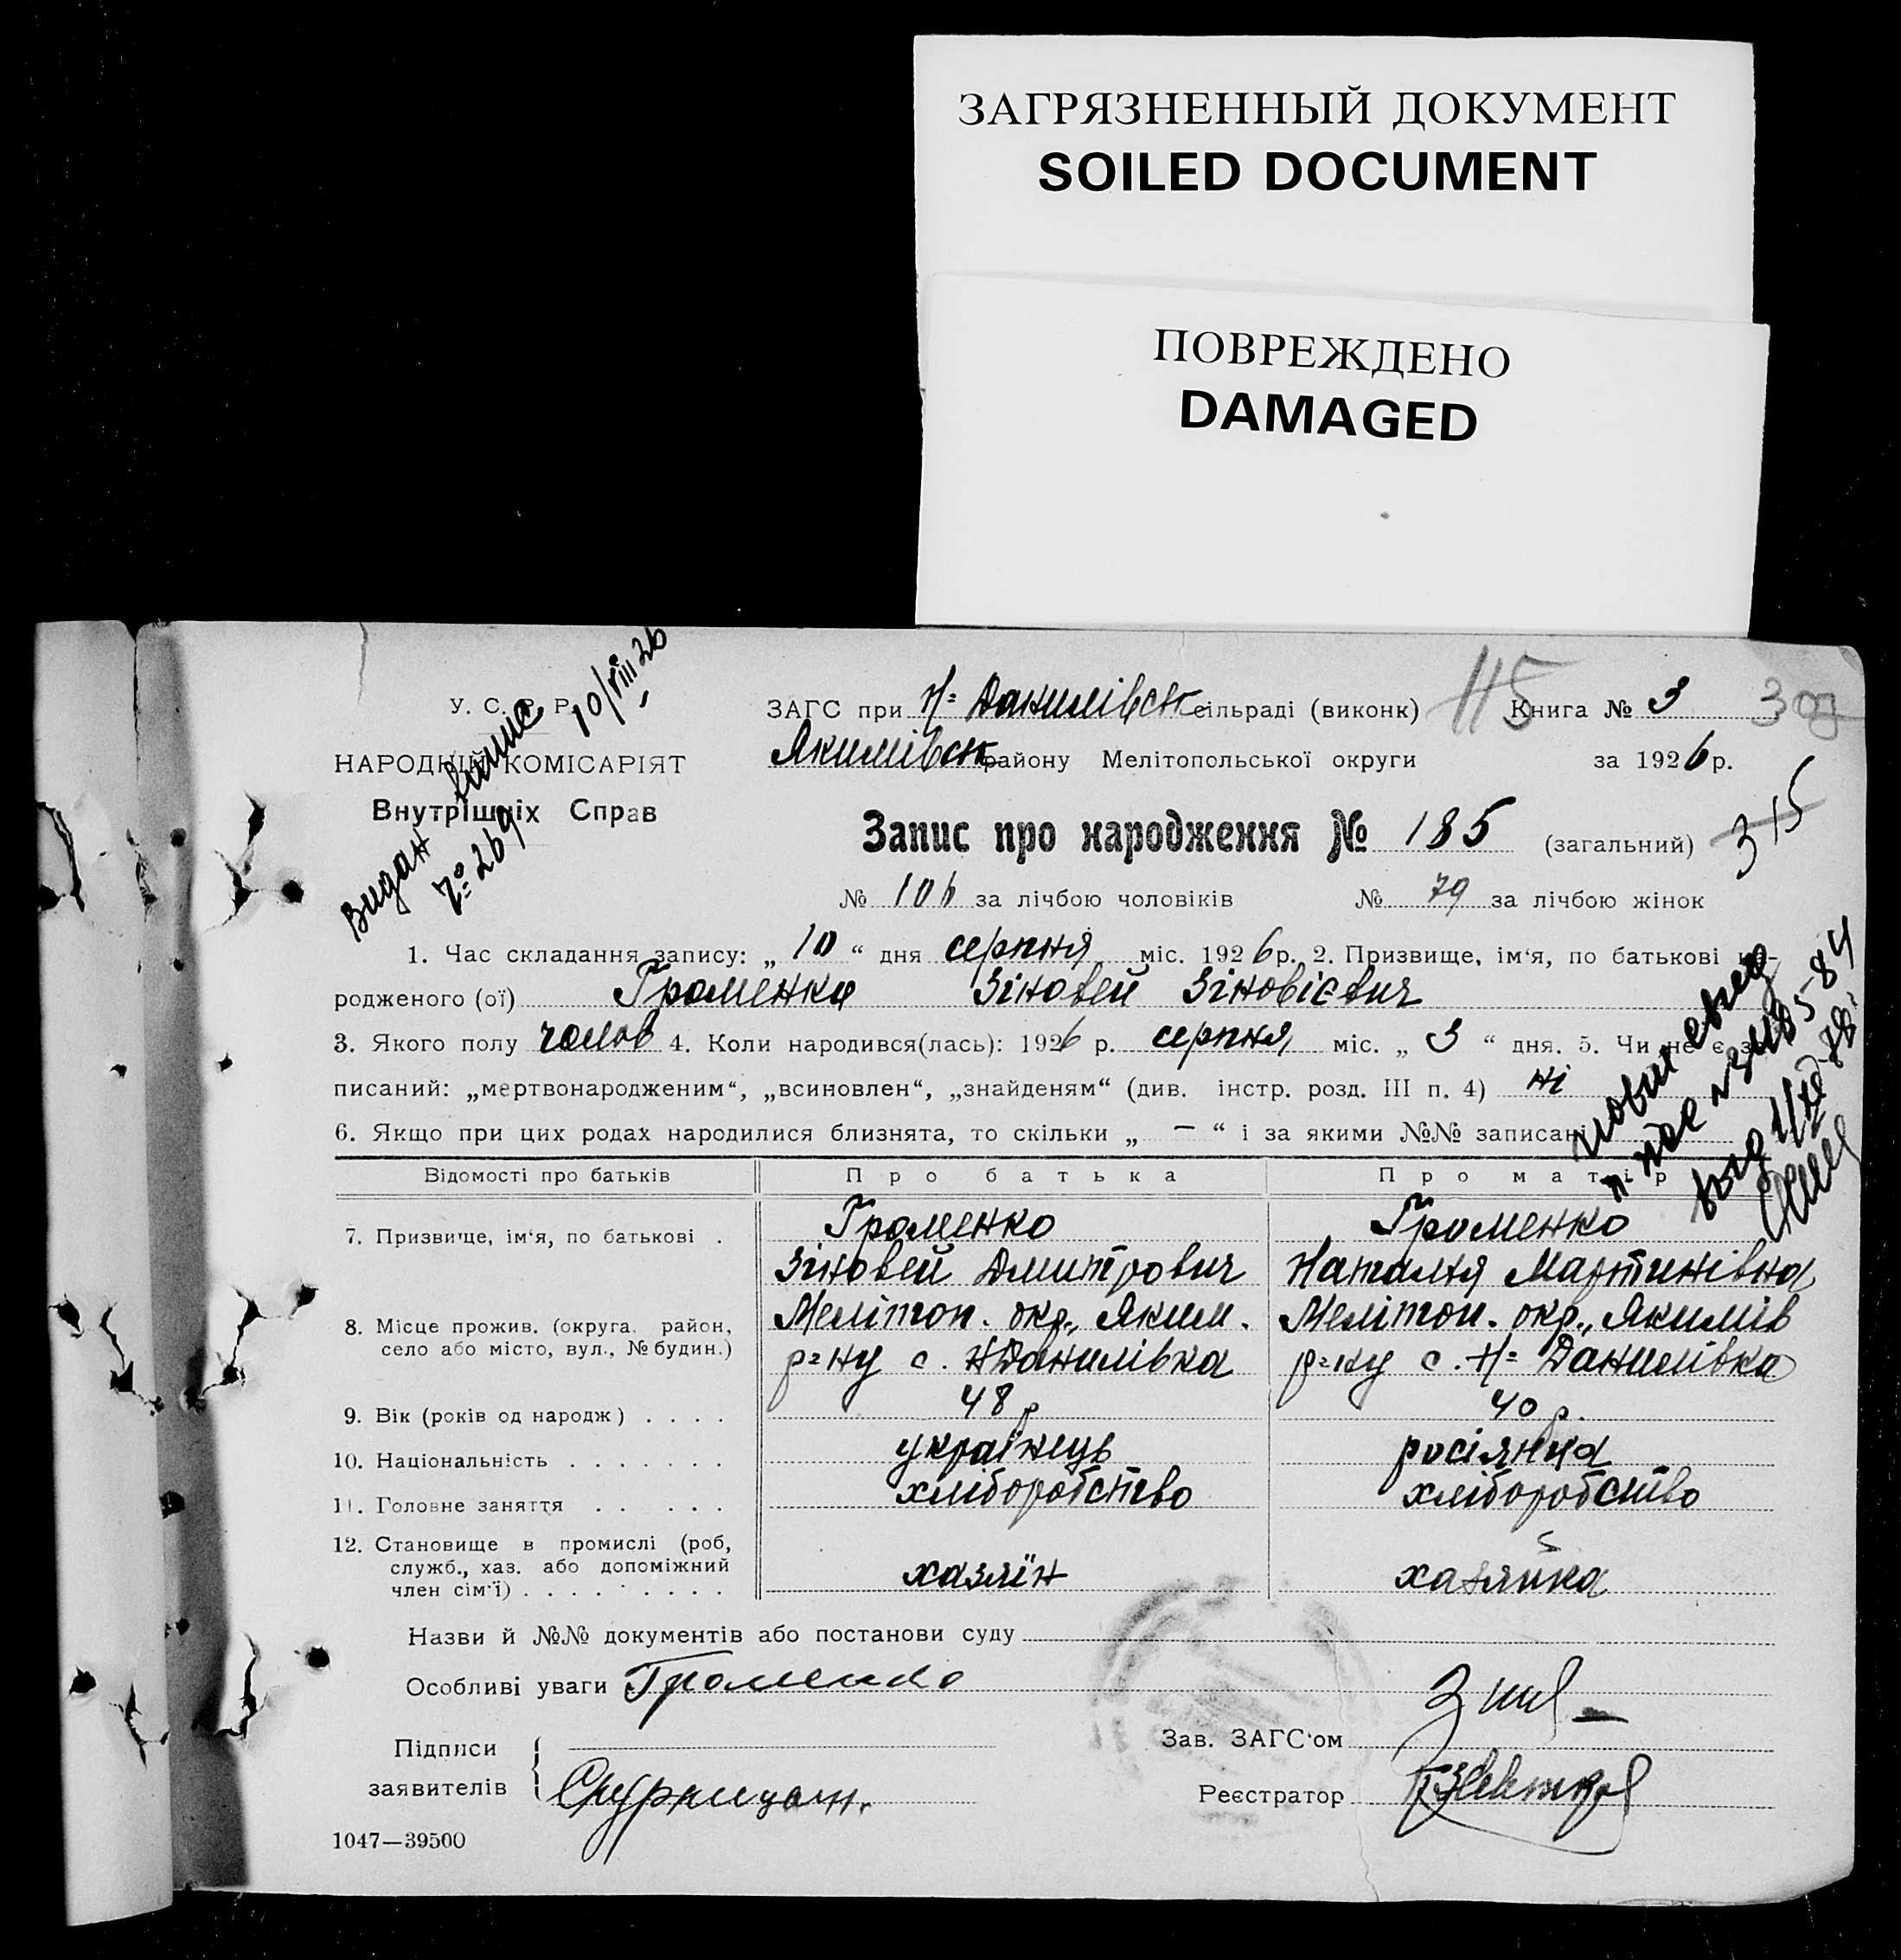 ЗАГРЯЗНЕННЫЙ ДОКУМЕНТ
SOILED DOCUMENT
ПОВРЕЖДЕНО
DAMAGED
У. С. Р. Р.
НАРОДНІЙ КОМІСАРІЯТ
Внутрішніх Справ
Видан
№ 269
10/VIII 26
ЗАГС при Н= Данилівск сільраді (виконк) Книга № 3
115
303
Якимівск району Мелітопольської округи за 1926 р.
Запис про народження № 185 (загальний)
315
№ 106 за лічбою чоловіків № 79 за лічбою жінок
1. Час складання запису: „ 10 “ дня серпня міс. 1926 р. 2. Призвище, ім‘я, по батькові на-
родженого (ої) Громенко Зіновей Зіновієвич
3. Якого полу чолов 4. Коли народився(лась): 1926 р. серпня міс. „ 3 “ дня. 5. Чи не є за-
писаний: „мертвонародженим“, „всиновлен“, „знайденям“ (див. інстр. розд. III п. 4) ні
6. Якщо при цих родах народилися близнята, то скільки „ — “ і за якими №№ записані
Відомості про батьків Про батька Про матір
7. Призвище, ім‘я, по батькові . Громенко Громенко
Зіновей Дмитрович Наталя Мартинівна
8. Місце прожив. (округа. район, Мелітоп. окр., Яким. Мелітоп. окр., Якимів
село або місто, вул., № будин.) р=ну с. НДанилівка р=ну с. Н= Данилівка
9. Вік (років од народж) . . . . 48 р 40 р.
10. Національність . . . . . . . українець росіянка
11. Головне заняття . . . . . . хліборобство хліборобство
12. Становище в промислі (роб,
служб., хаз. або допоміжний
член сім‘ї) . . . . . . . . . хазяїн хазяйка
Назви й №№ документів або постанови суду
Особливі уваги Громенко
Підписи
заявителів
Зав. ЗАГС‘ом
Реєстратор
1047—39500